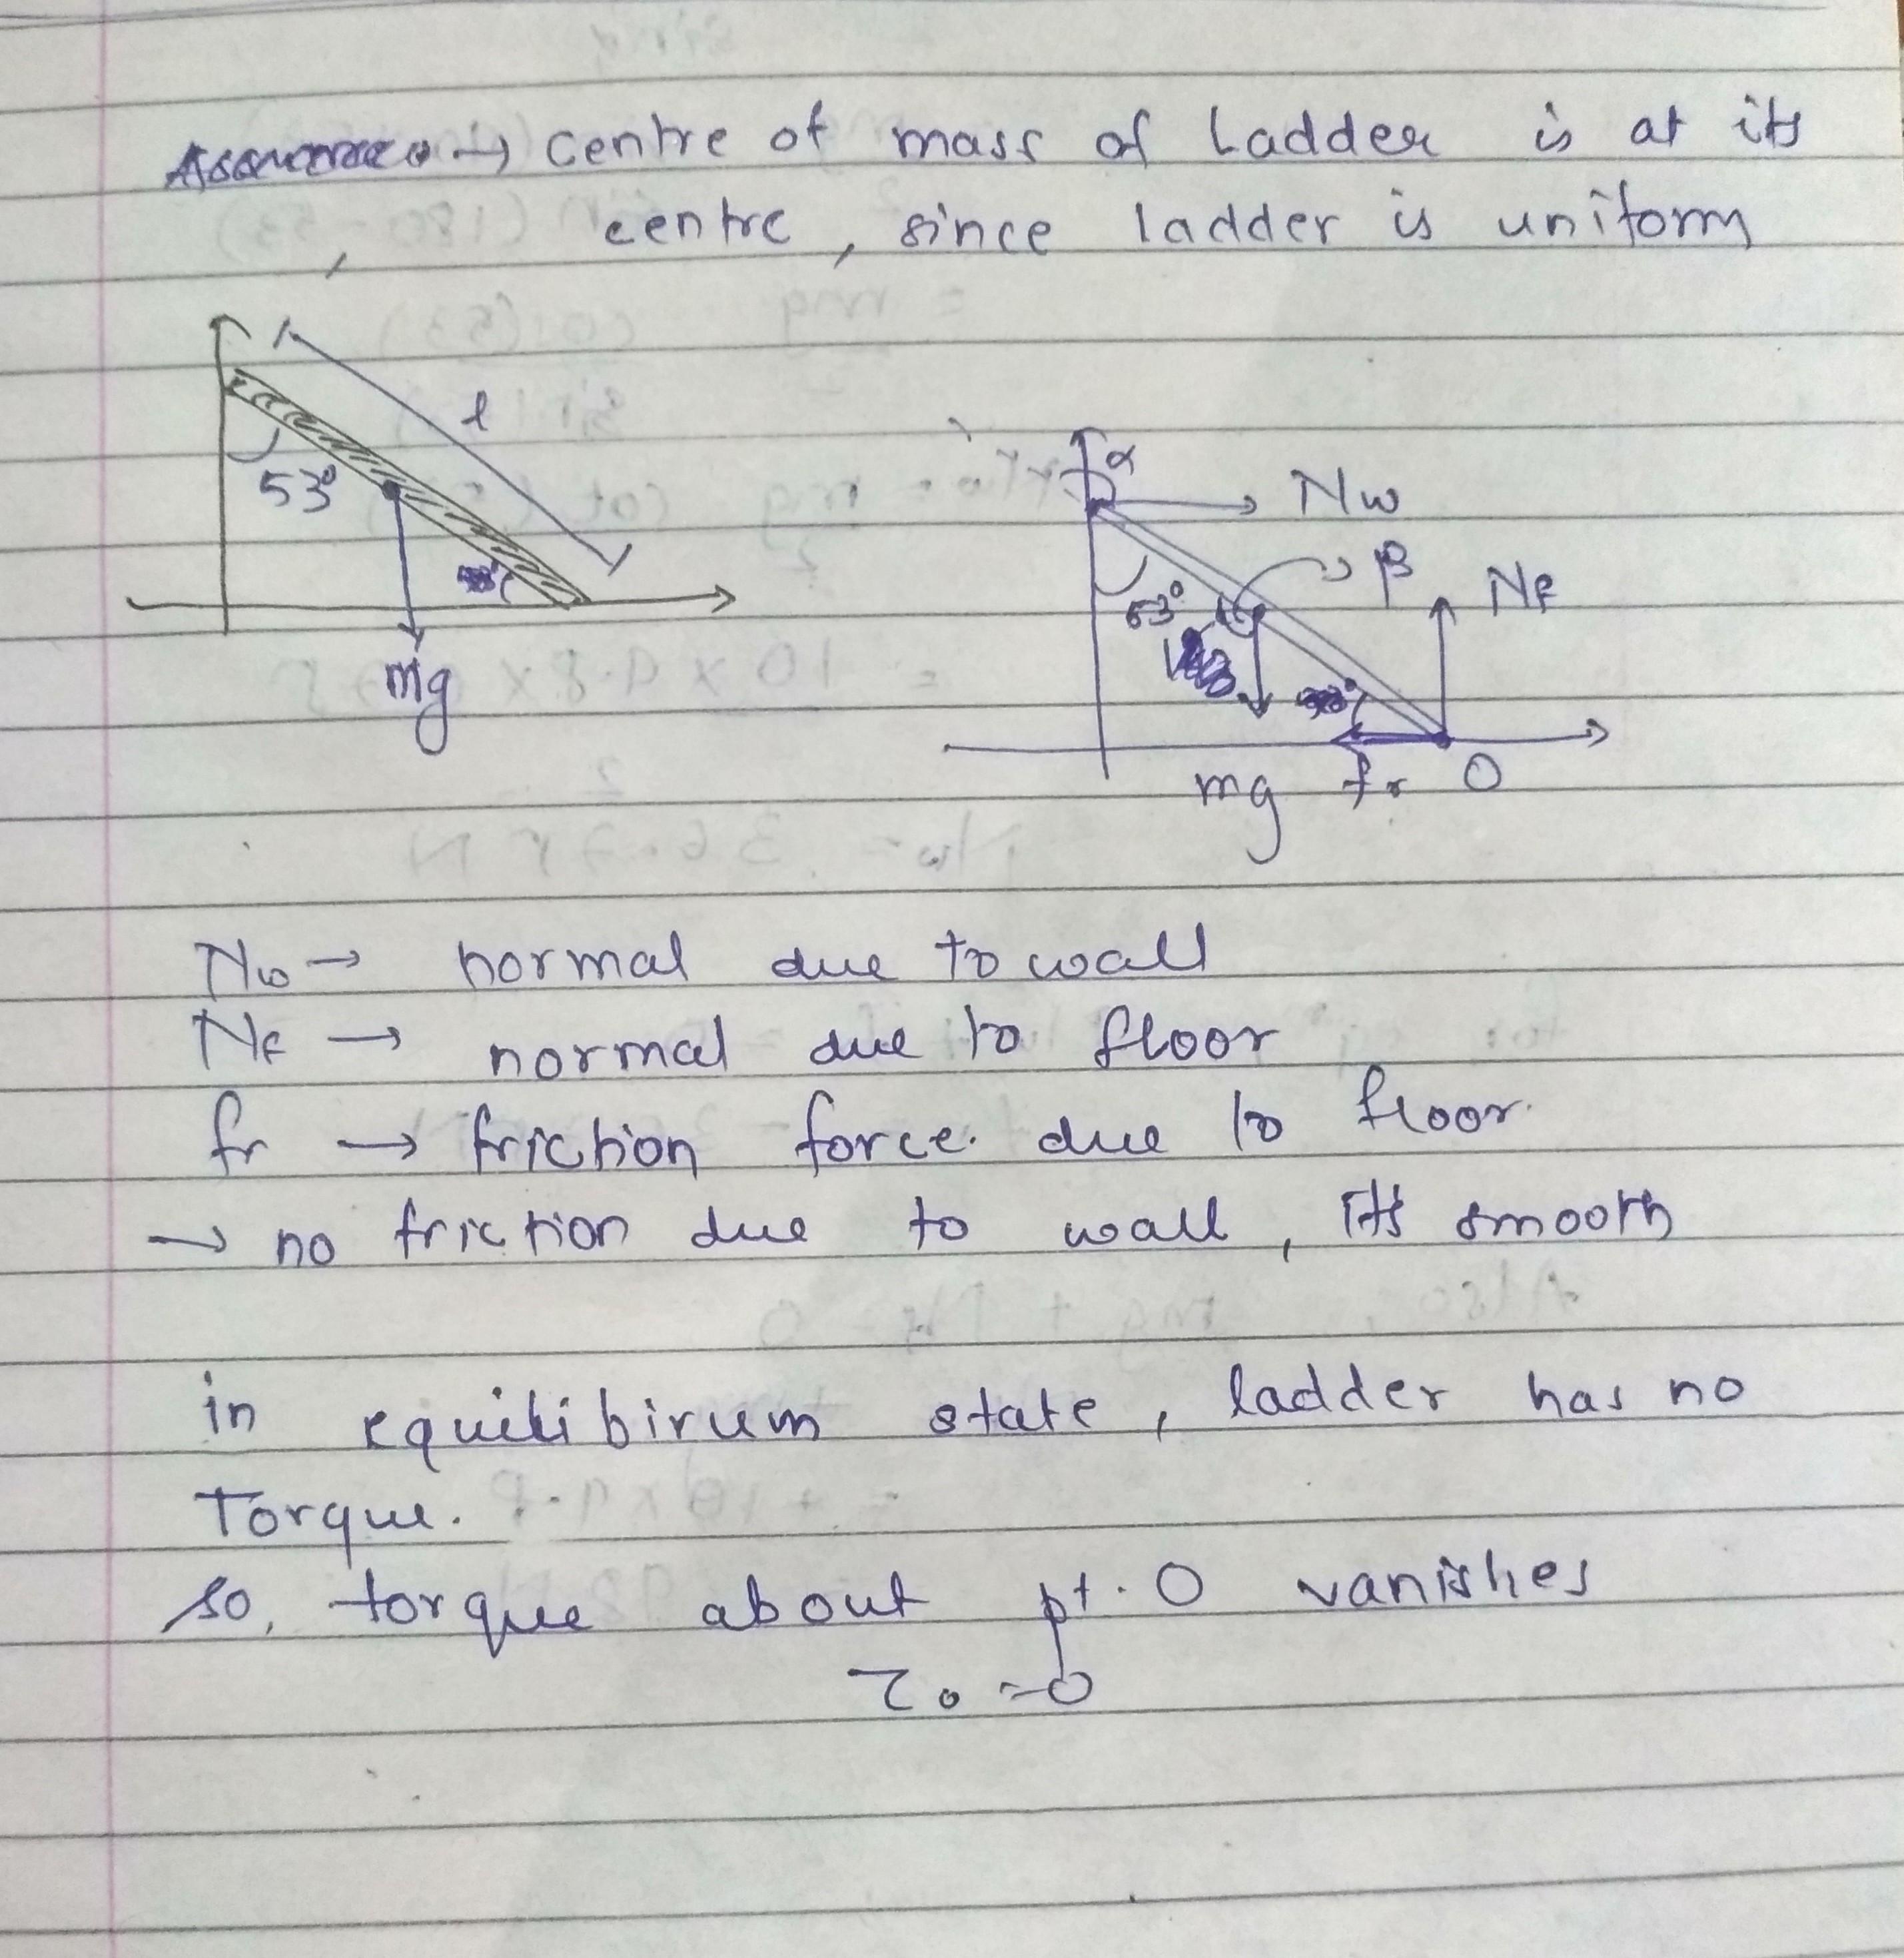 → centre of mass of ladder is at its
centre, since ladder is uniform
l
53°
mg
α
Nw
β
53°
Nf
mg fr O
Nw → normal due to wall
Nf → normal due to floor
fr → friction force. due to floor.
→ no friction due to wall, its smooth
in equilibirum state, ladder has no
Torque.
so, torque about pt. O vanishes
τo = 0